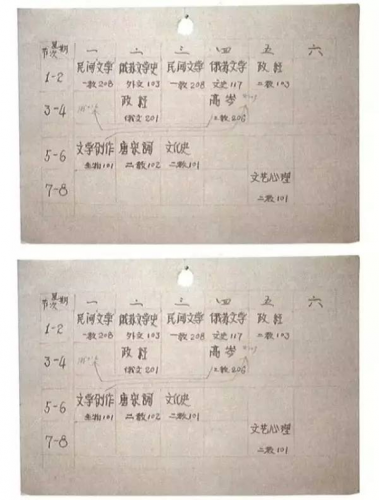 星期 一 二 三 四 五 六
节次
1-2 民间文学 俄苏文学史 民间文学 俄苏文学 政经
一教208 外文103 一教208 文史117 二教103
3-4 政经 高岑
俄文201 二教206
5-6 文学创作 唐宋词 文化史
生物101 二教102 二教101
7-8 文艺心理
二教101
星期 一 二 三 四 五 六
节次
1-2 民间文学 俄苏文学史 民间文学 俄苏文学 政经
一教208 外文103 一教208 文史117 二教103
3-4 政经 高岑
俄文201 二教206
5-6 文学创作 唐宋词 文化史
生物101 二教102 二教101
7-8 文艺心理
二教101